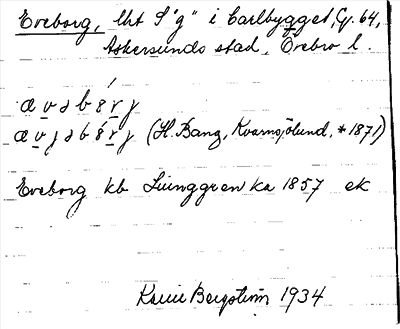 Eveborg, lht S "g" i Carlbygget, Gj. 64,
Askersunds stad, Örebro l.
(H. Bang, Kvarnsjölund, *1871)
Eveborg kb Ljunggren ka 1857 ek
Bergström 1934